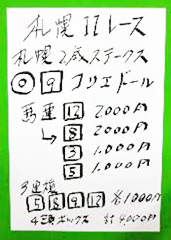 札幌11レース
札幌2歳ステークス
◎ 9 コリエドール
馬連 12 2000円
↳ 8 2000円
3 1.000円
5 1.000円
3連複
5 8 9 12 各1000円
4頭ボックス 計4000円